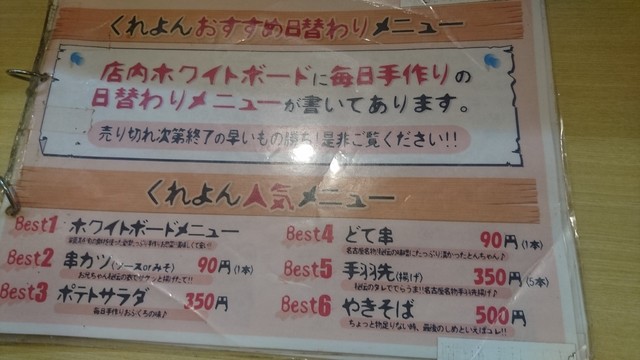 くれよんおすすめ日替わりメニュー
店内ホワイトボードに毎日手作りの
日替わりメニューが書いてあります。
売り切れ次第終了の早いもの勝ち!是非ご覧ください!!
くれよん人気メニュー
Best1 ホワイトボードメニュー
Best2 串カツ(ソースorみそ) 90円(1本)
Best3 ポテトサラダ 350円
毎日手作りおふくろの味♪
Best4 どて串 90円(1本)
Best5 手羽先(揚げ) 350円(5本)
Best6 やきそば 500円
ちょっと物足りない時、最後のしめといえばコレ!!